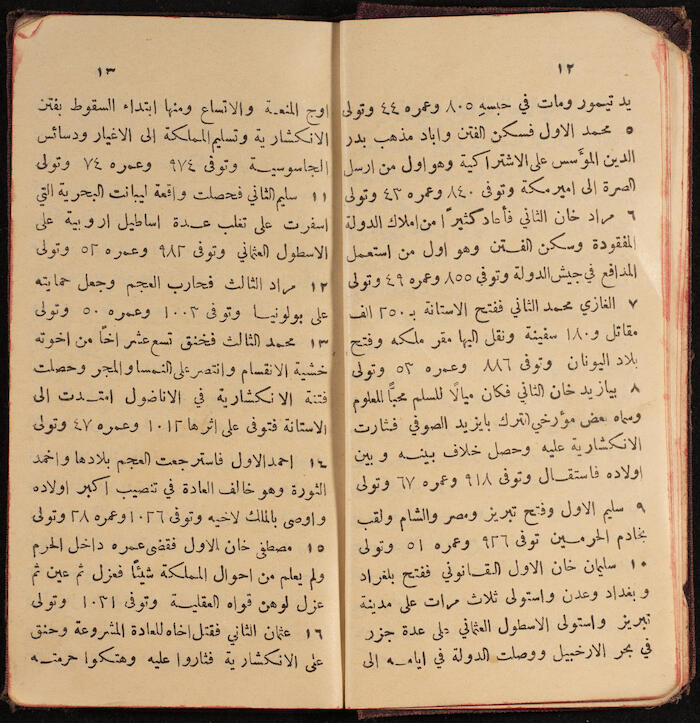 ١٢
يد تيمور ومات في حبسه ٨٠٥ وعمره ٤٤ وتولى
٥ محمد الاول فسكن الفتن واباد مذهب بدر
الدين المؤسس على الاشتراكية وهو اول من ارسل
الصرة الى امير مكة وتوفى ٨٤٠ وعمره ٤٣ وتولى
٦ مراد خان الثاني فأعاد كثيرًا من املاك الدولة
المفقودة وسكن الفتن وهو اول من استعمل
المدافع في جيش الدولة وتوفى ٨٥٥ وعمره ٤٩ وتولى
٧ الغازي محمد الثاني ففتح الاستانة بـ ٢٥٠ الف
مقاتل و١٨٠ سفينة ونقل اليها مقر ملكه وفتح
بلاد اليونان وتوفى ٨٨٦ وعمره ٥٣ وتولى
٨ بيازيد خان الثاني فكان ميالًا للسلم محبًّا للعلوم
وسماه بعض مؤرخي الترك بايزيد الصوفي فثارت
الانكشارية عليه وحصل خلاف بينه وبين
اولاده فاستقال وتوفى ٩١٨ وعمره ٦٧ وتولى
٩ سليم الاول وفتح تبريز ومصر والشام ولقب
بخادم الحرمين توفى ٩٢٦ وعمره ٥١ وتولى
١٠ سليمان خان الاول القانوني ففتح بلغراد
وبغداد وعدن واستولى ثلاث مرات على مدينة
تبريز واستولى الاسطول العثماني على عدة جزر
في بحر الارخبيل ووصلت الدولة في ايامه الى
١٣
اوج المنعة والاتساع ومنها ابتداء السقوط بفتن
الانكشارية وتسليم المملكة الى الاغيار ودسائس
الجاسوسية وتوفى ٩٧٤ وعمره ٧٤ وتولى
١١ سليم الثاني فحصلت واقعة ليبانت البحرية التي
اسفرت على تغلب عدة اساطيل اروبية على
الاسطول العثماني وتوفى ٩٨٢ وعمره ٥٢ وتولى
١٢ مراد الثالث فحارب العجم وجعل حمايته
على بولونيا وتوفى ١٠٠٢ وعمره ٥٠ وتولى
١٣ محمد الثالث فخنق تسع عشر اخًا من اخوته
خشية الانقسام وانتصر على النمسا والمجر وحصلت
فتنة الانكشارية في الاناضول امتدت الى
الاستانة فتوفى على اثرها ١٠١٢ وعمره ٤٧ وتولى
١٤ احمد الاول فاسترجعت العجم بلادها واخمد
الثورة وهو خالف العادة في تنصيب اكبر اولاده
واوصى بالملك لاخيه وتوفى ١٠٢٦ وعمره ٢٨ وتولى
١٥ مصطفى خان الاول فقضى عمره داخل الحرم
ولم يعلم من احوال المملكة شيئًا فعزل ثم عين ثم
عزل لوهن قواه العقلية وتوفى ١٠٣١ وتولى
١٦ عثمان الثاني فقتل اخاه للعادة المشروعة وحنق
على الانكشارية فثاروا عليه وهتكوا حرمته